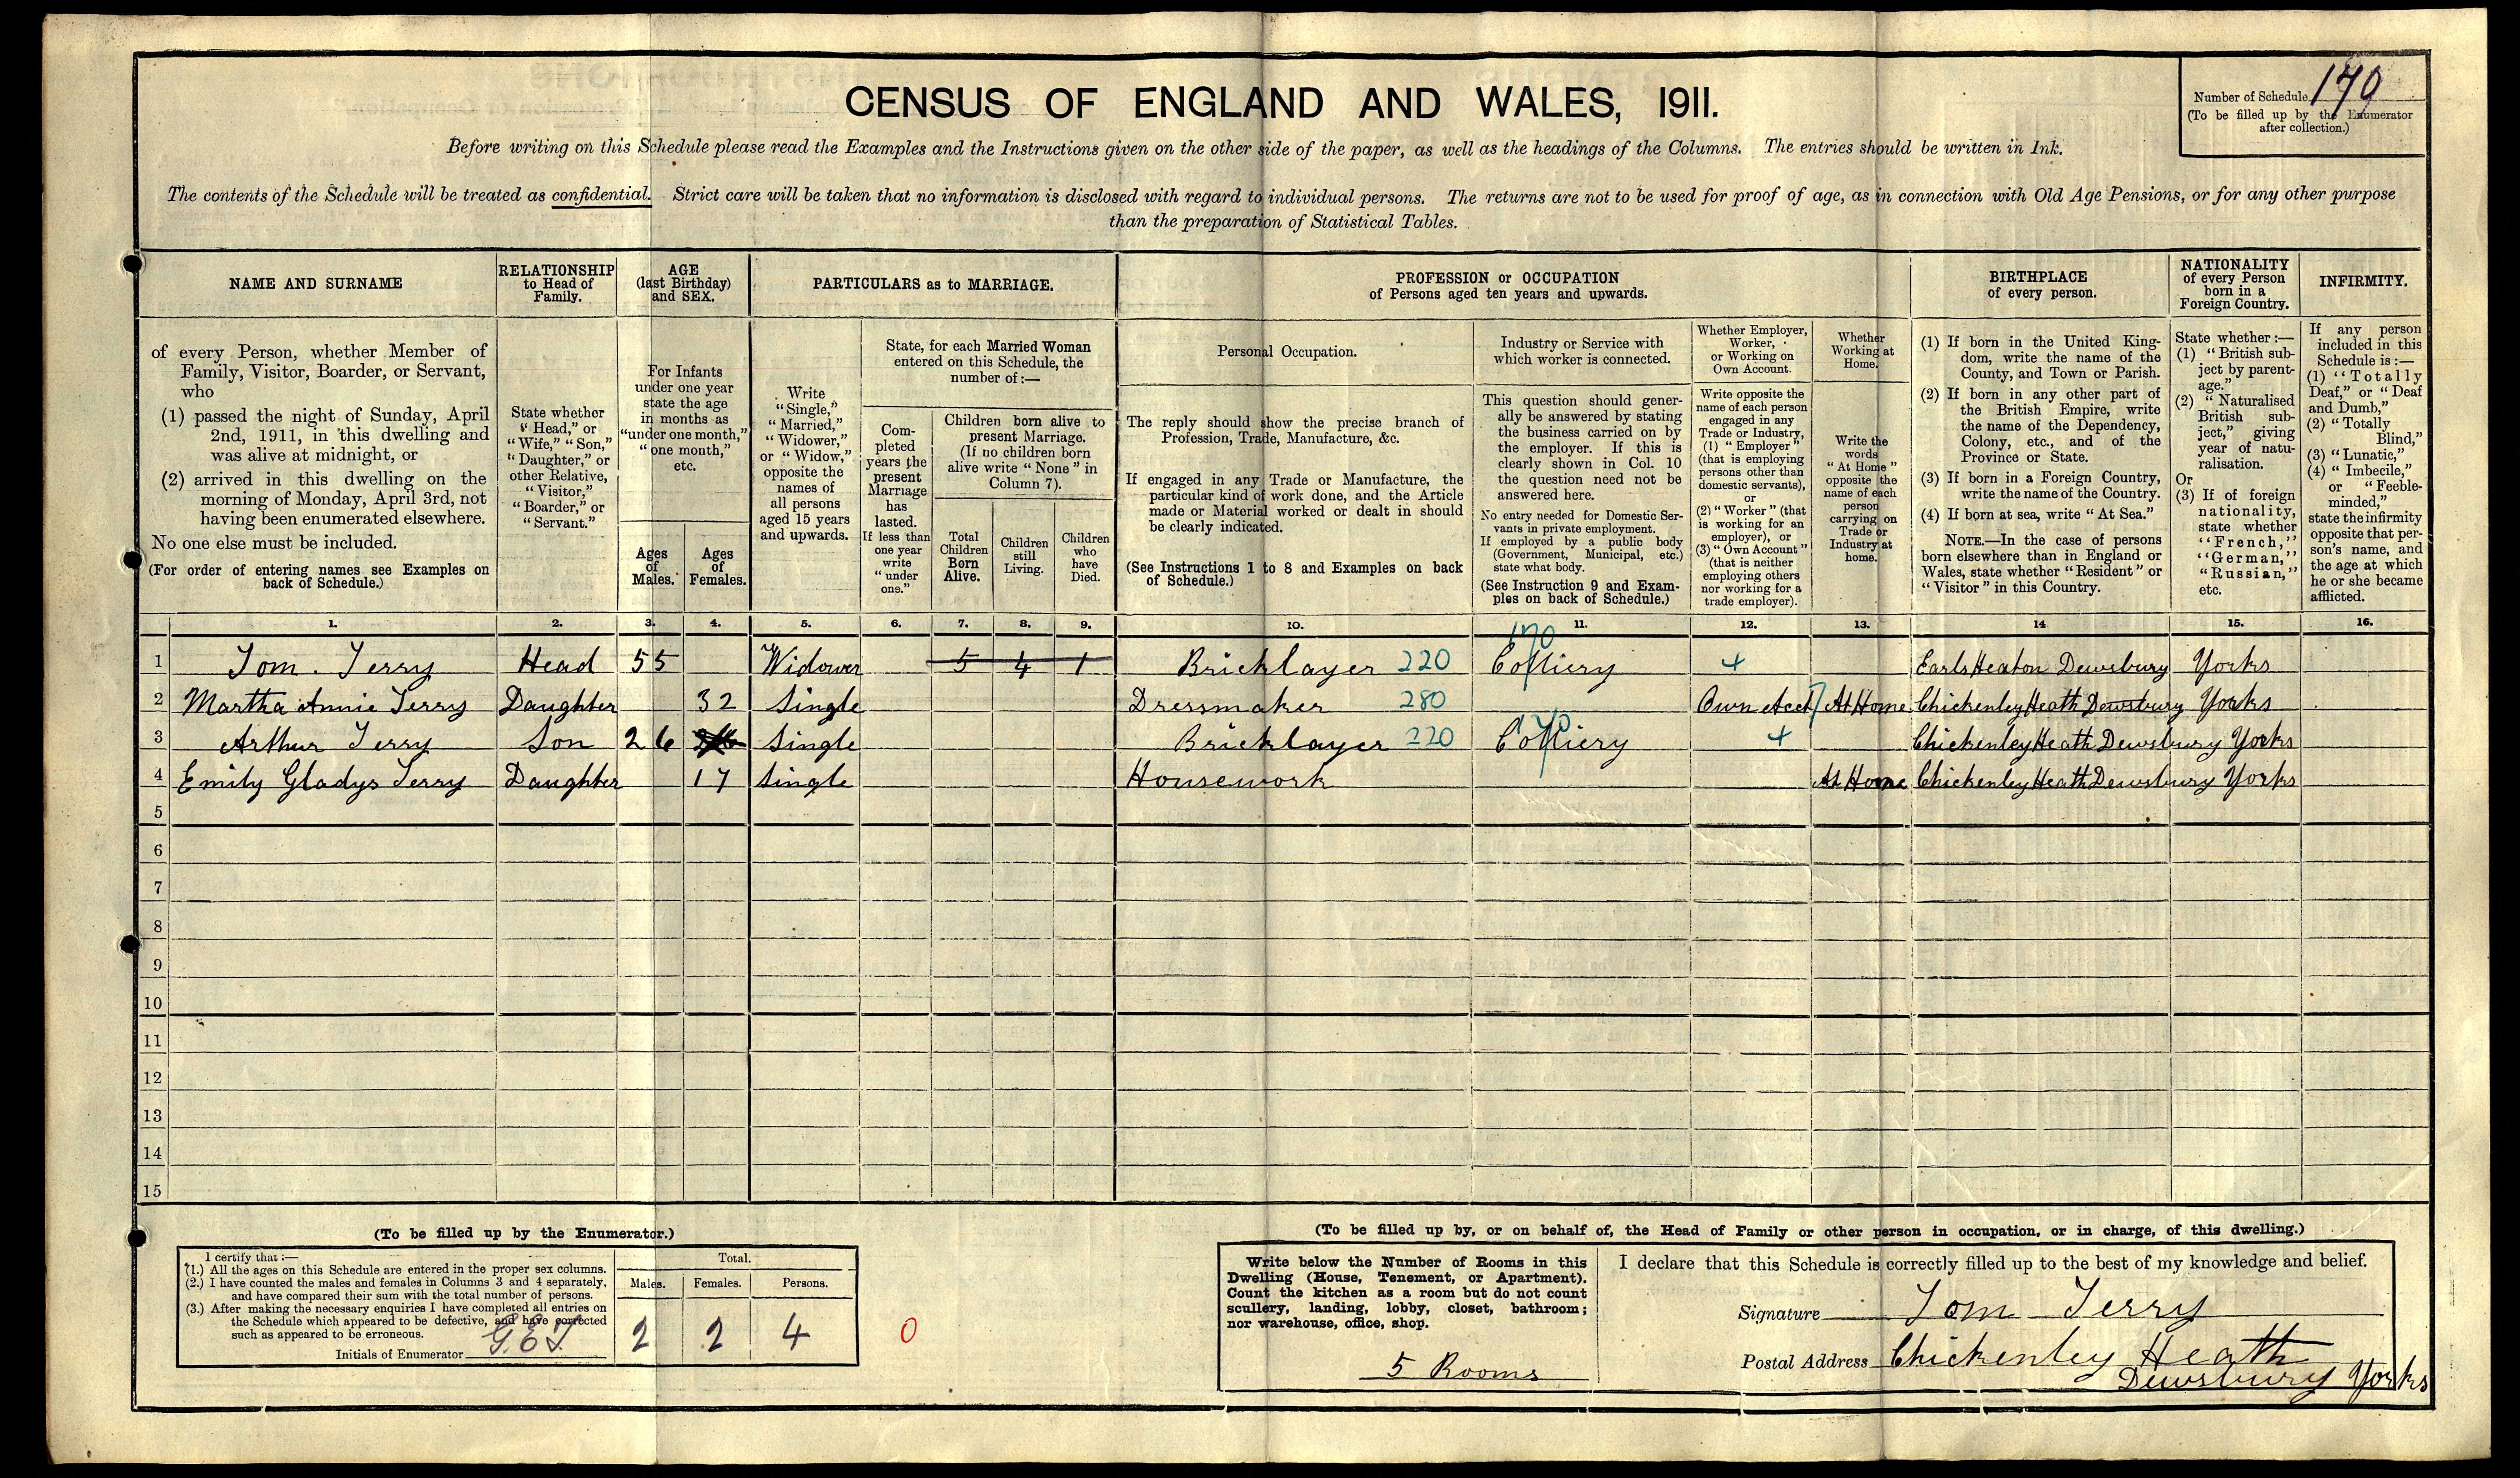 CENSUS OF ENGLAND AND WALES, 1911.
Number of Schedule 170
(To be filled up by the Enumerator
after collection.)
Before writing on this Schedule please read the Examples and the Instructions given on the other side of the paper, as well as the headings of the Columns. The entries should be written in Ink.
The contents of the Schedule will be treated as confidential. Strict care will be taken that no information is disclosed with regard to individual persons. The returns are not to be used for proof of age, as in connection with Old Age Pensions, or for any other purpose
than the preparation of Statistical Tables.
NAME AND SURNAME
RELATIONSHIP
to Head of
Family.
AGE
(last Birthday)
and SEX.
PARTICULARS as to MARRIAGE.
PROFESSION or OCCUPATION
of Persons aged ten years and upwards.
BIRTHPLACE
of every person.
NATIONALITY
of every Person
born in a
Foreign Country.
INFIRMITY.
of every Person, whether Member of
Family, Visitor, Boarder, or Servant,
who
(1) passed the night of Sunday, April
2nd, 1911, in this dwelling and
was alive at midnight, or
(2) arrived in this dwelling on the
morning of Monday, April 3rd, not
having been enumerated elsewhere.
No one else must be included.
(For order of entering names see Examples on
back of Schedule.)
State whether
"Head," or
"Wife," "Son,"
"Daughter," or
other Relative,
"Visitor,"
"Boarder," or
"Servant."
For Infants
under one year
state the age
in months as
"under one month,"
"one month,"
etc.
Ages
of
Males.
Ages
of
Females.
Write
"Single,"
"Married,"
"Widower,"
or "Widow,"
opposite the
names of
all persons
aged 15 years
and upwards.
State, for each Married Woman
entered on this Schedule, the
number of :—
Com-
pleted
years the
present
Marriage
has
lasted.
If less than
one year
write
"under
one."
Children born alive to
present Marriage.
(If no children born
alive write "None" in
Column 7).
Total
Children
Born
Alive.
Children
still
Living.
Children
who
have
Died.
Personal Occupation.
The reply should show the precise branch of
Profession, Trade, Manufacture, &c.
If engaged in any Trade or Manufacture, the
particular kind of work done, and the Article
made or Material worked or dealt in should
be clearly indicated.
(See Instructions 1 to 8 and Examples on back
of Schedule.)
Industry or Service with
which worker is connected.
This question should gener-
ally be answered by stating
the business carried on by
the employer. If this is
clearly shown in Col. 10
the question need not be
answered here.
No entry needed for Domestic Ser-
vants in private employment.
If employed by a public body
(Government, Municipal, etc.)
state what body.
(See Instruction 9 and Exam-
ples on back of Schedule.)
Whether Employer,
Worker,
or Working on
Own Account.
Write opposite the
name of each person
engaged in any
Trade or Industry,
(1) "Employer"
(that is employing
persons other than
domestic servants),
or
(2) "Worker" (that
is working for an
employer), or
(3) "Own Account"
(that is neither
employing others
nor working for a
trade employer).
Whether
Working at
Home.
Write the
words
"At Home"
opposite the
name of each
person
carrying on
Trade or
Industry at
home.
(1) If born in the United King-
dom, write the name of the
County, and Town or Parish.
(2) If born in any other part of
the British Empire, write
the name of the Dependency,
Colony, etc., and of the
Province or State.
(3) If born in a Foreign Country,
write the name of the Country.
(4) If born at sea, write "At Sea."
NOTE.—In the case of persons
born elsewhere than in England or
Wales, state whether "Resident" or
"Visitor" in this Country.
State whether :—
(1) "British sub-
ject by parent-
age."
(2) "Naturalised
British sub-
ject," giving
year of natu-
ralisation.
Or
(3) If of foreign
nationality,
state whether
"French,"
"German,"
"Russian,"
etc.
If any person
included in this
Schedule is :—
(1) "Totally
Deaf," or "Deaf
and Dumb,"
(2) "Totally
Blind,"
(3) "Lunatic,"
(4) "Imbecile,"
or "Feeble-
minded,"
state the infirmity
opposite that per-
son's name, and
the age at which
he or she became
afflicted.
1. 2. 3. 4. 5. 6. 7. 8. 9. 10. 11. 12. 13. 14 15. 16.
170
1 Tom. Terry Head 55 Widower 5 4 1 Bricklayer 220 Colliery + Earls Heaton Dewsbury Yorks
2 Martha Annie Terry Daughter 32 Single Dressmaker 280 Own Acct At Home Chickenley Heath Dewsbury Yorks
170
3 Arthur Terry Son 26 26 Single Bricklayer 220 Colliery + Chickenley Heath Dewsbury Yorks
4 Emily Gladys Terry Daughter 17 Single Housework At Home Chickenley Heath Dewsbury Yorks
5
6
7
8
9
10
11
12
13
14
15
(To be filled up by the Enumerator.)
I certify that :—
(1.) All the ages on this Schedule are entered in the proper sex columns.
(2.) I have counted the males and females in Columns 3 and 4 separately,
and have compared their sum with the total number of persons.
(3.) After making the necessary enquiries I have completed all entries on
the Schedule which appeared to be defective, and have corrected
such as appeared to be erroneous.
Initials of Enumerator
Total.
Males. Females. Persons.
2 2 4
0
(To be filled up by, or on behalf of, the Head of Family or other person in occupation, or in charge, of this dwelling.)
Write below the Number of Rooms in this
Dwelling (House, Tenement, or Apartment).
Count the kitchen as a room but do not count
scullery, landing, lobby, closet, bathroom;
nor warehouse, office, shop.
5 Rooms
I declare that this Schedule is correctly filled up to the best of my knowledge and belief.
Signature Tom Terry
Postal Address Chickenley Heath
Dewsbury Yorks